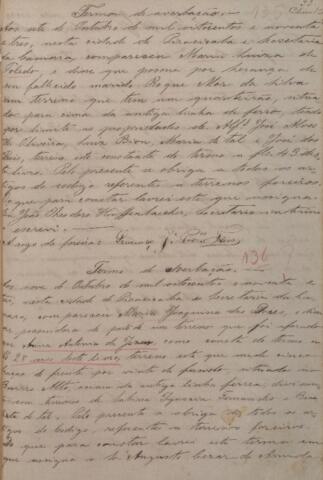 Termo de averbação.
Aos sete de Outubro de mil oitocentos e noventa
e tres, nesta cidade de Piracicaba e Secretaria
da Camara compareceu Maria Luiza de
Toledo, e disse que possue por herança de
seu fallecido marido Roque Mor da Silva
um terreno que tem um quarteirão, situa
do para cima da antiga linha de ferro, tendo
por limite as propriedades de José Alves
de Oliveira, Maria de tal e José dos
Reis, terreno este constante do termo a fls.
livro. Pelo presente se obriga a todos os ar
tigos do codigo referentes a terrenos foreiros.
do que para constar lavrei este que assigna.
Eu João Theodoro Secretario interino
escrevi.
A rogo da foreira:
136
Termo de Averbação.
Aos nove de Outubro de mil oitocentos e noventa e
tres, nesta cidade de Piracicaba e Secretaria da Ca
mara, compareceu Maria Joaquina das Dores, e disse
ser possuidora de parte de um terreno que foi aforado
a Anna Antonia de Jesus como consta do termo a
fls 28 verso deste livro, terreno este que mede cinco
braças de frente por vinte de fundo, situado no
Bairro Alto, acima da antiga linha ferrea, divisando
com terrenos de Sabina Fernandes e
de tal. Pelo presente se obriga a todos os ar
tigos do Codigo, referentes a terrenos foreiros.
Do que para constar lavrei este termo em
que assigna a Augusto Cezar de Arruda